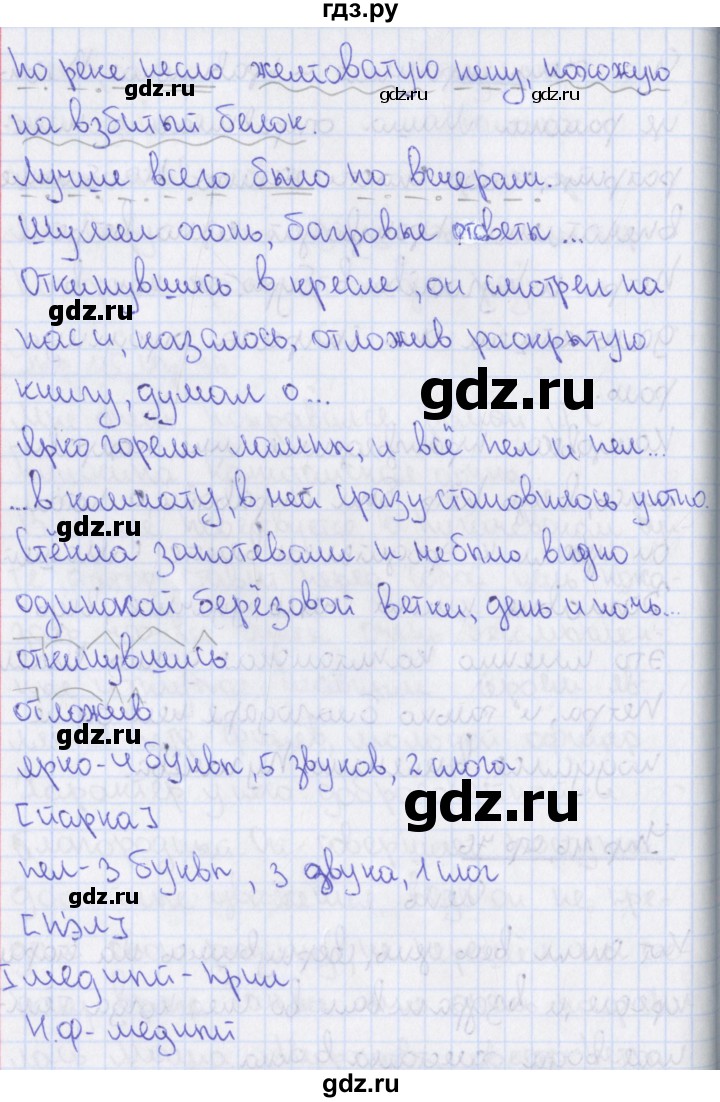 гдз.ру
по реке несло желтоватую пену, похожую
gdz.ru
gdz.ru
на взбитый белок.
Лучше всего было по вечерам.
Шумел огонь, багровые отсветы ...
Откинувшись в кресле, он смотрел на
gdz.ru
нас и, казалось, отложив раскрытую
книгу, думал о...
gdz.ru
Ярко горели лампы, и всё пел и пел...
...в комнату, в ней сразу становилось уютно.
gdz.ru
Стёкла запотевали и не было видно
одинокой берёзовой ветки, день и ночь...
откинувшись
отложив
ярко - 4 буквы, 5 звуков, 2 слога
gdz.ru
gdz.ru
[йарка]
пел - 3 буквы, 3 звука, 1 слог
gdz.ru
[п'эл]
I медный - прил.
Н.ф - медный
gdz.ru
gdz.ru